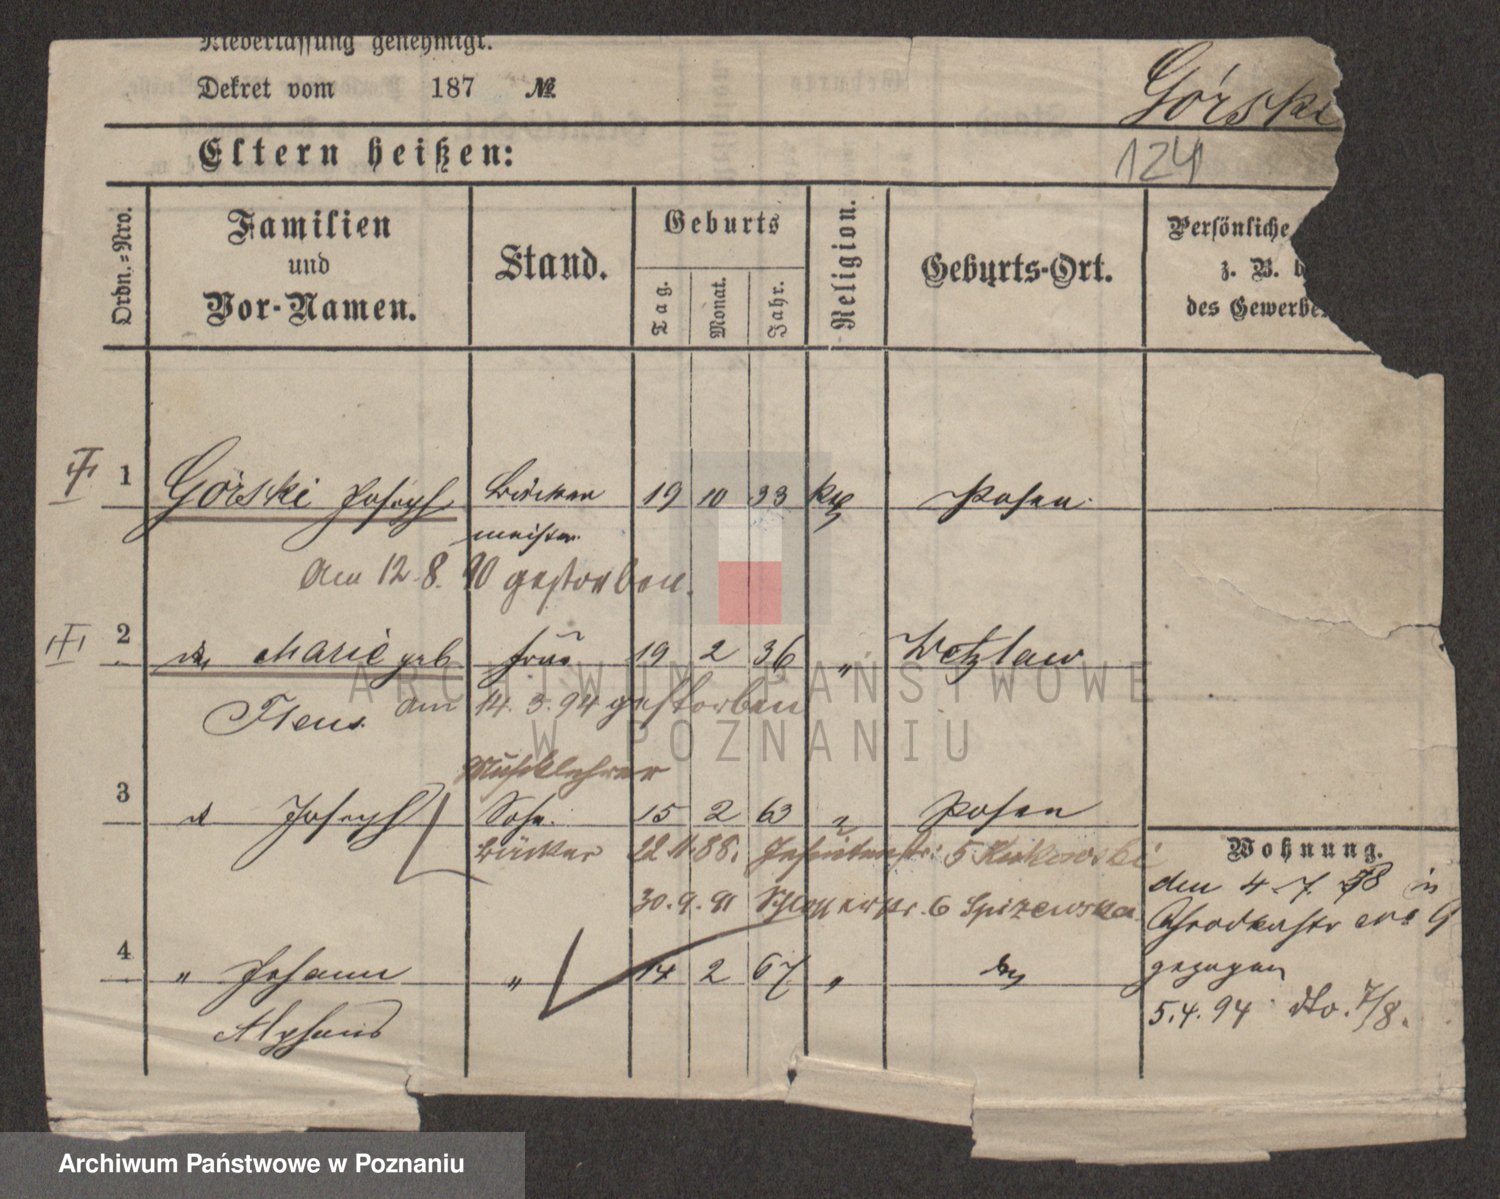 Niederlassung genehmigt.
Dekret vom 187 №
Górski
Eltern heißen:
124
Ordn.=Nro.
Familien
und
Vor-Namen.
Stand.
Geburts
Tag.
Monat.
Jahr.
Religion.
Geburts-Ort.
Persönliche
z. B.
des Gewerbe
1 Górski Joseph 19 10 33 kth Posen
meister
Am 12.8.90 gestorben.
2 Marie geb Frau 19 2 36 " Wetzlaw
Flens. am 14.3.94 gestorben
Musiklehrer
3 Joseph Sohn 15 2 63 " Posen
Bäcker 22 11 88. Jesuitenstr. 5
30.9.91 Schlosserstr. 6 Spizewska
Wohnung.
den 4. 7. 78 in
No 9
gezogen
4 " Johann " 14 2 67 "
Alphons
5.4.94 dto. 7/8.
ARCHIWUM PAŃSTWOWE
W POZNANIU
Archiwum Państwowe w Poznaniu